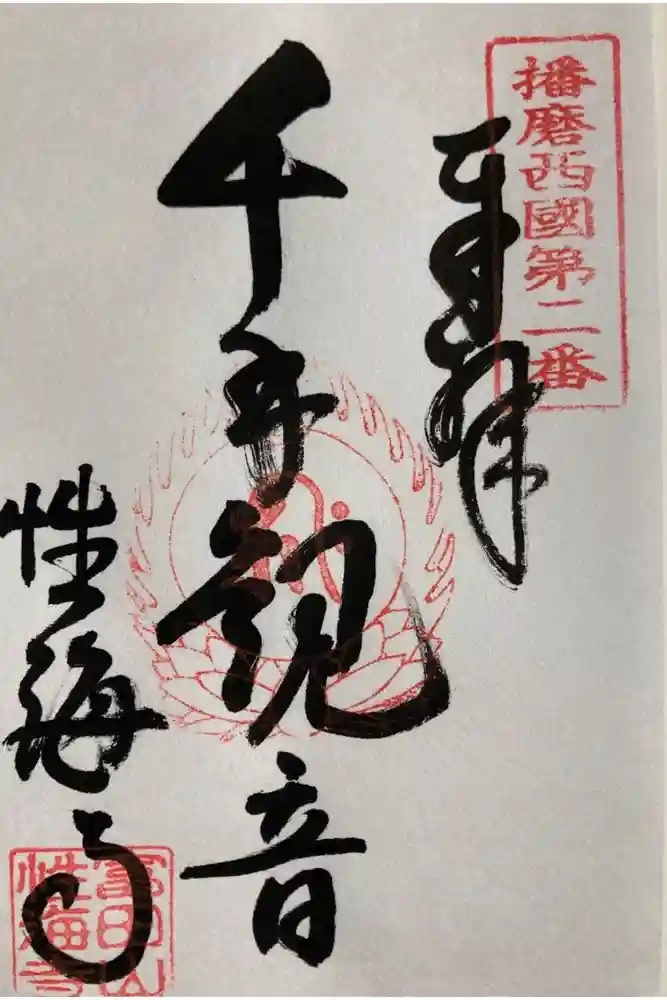 播磨西國第二番
奉拝
千手観音
性海寺
高和山
性海寺